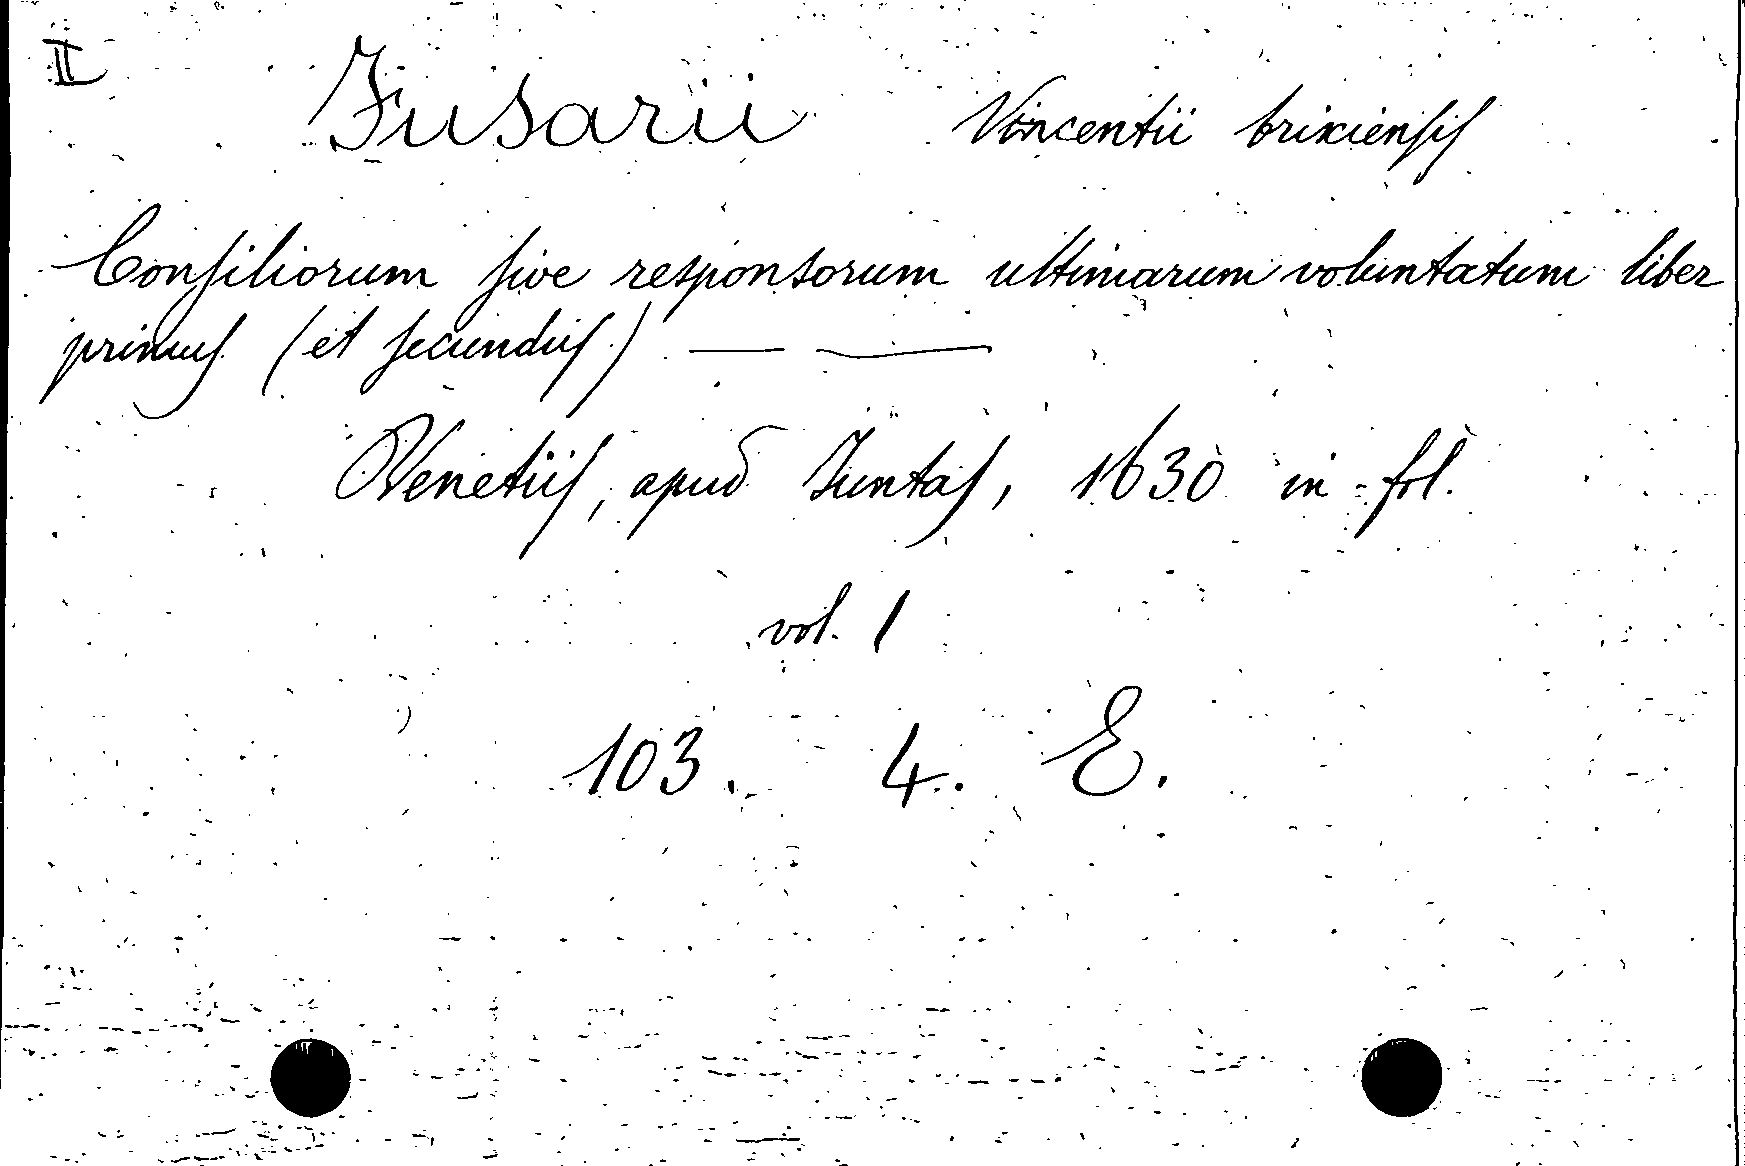 II
Fusarii Vincentii brixiensis
Consiliorum sive responsorum ultimarum voluntatum liber
primus (et secundus) — —
Venetiis, apud Juntas, 1630 in-fol.
vol. 1
103. 4. E.